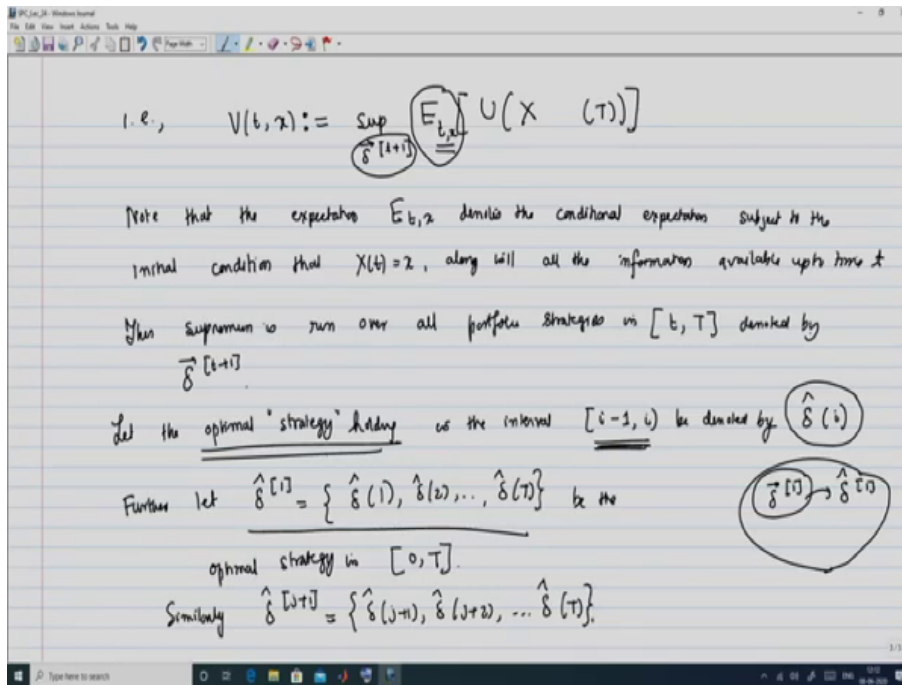 SPC_Lec_24 - Windows Journal
File Edit View Insert Actions Tools Help
Page Width
i.e., V(t, x) := sup E_{t,x} [ U( X (T)) ]
δ⃗^{[t+1]}
Note that the expectation E_{t,x} denotes the conditional expectation subject to the
initial condition that X(t) = x, along will all the information available upto time t
This supremum is run over all portfolio strategies in [t, T] denoted by
δ⃗^{[t+1]}.
Let the optimal "strategy" holding in the interval [i-1, i) be denoted by δ̂(i)
Further let δ̂^{[1]} = { δ̂(1), δ̂(2), .., δ̂(T)} be the δ⃗^{[1]} → δ̂^{[1]}
optimal strategy in [0, T].
Similarly δ̂^{[j+1]} = { δ̂(j+1), δ̂(j+2), ... δ̂(T)}.
3/3
Type here to search